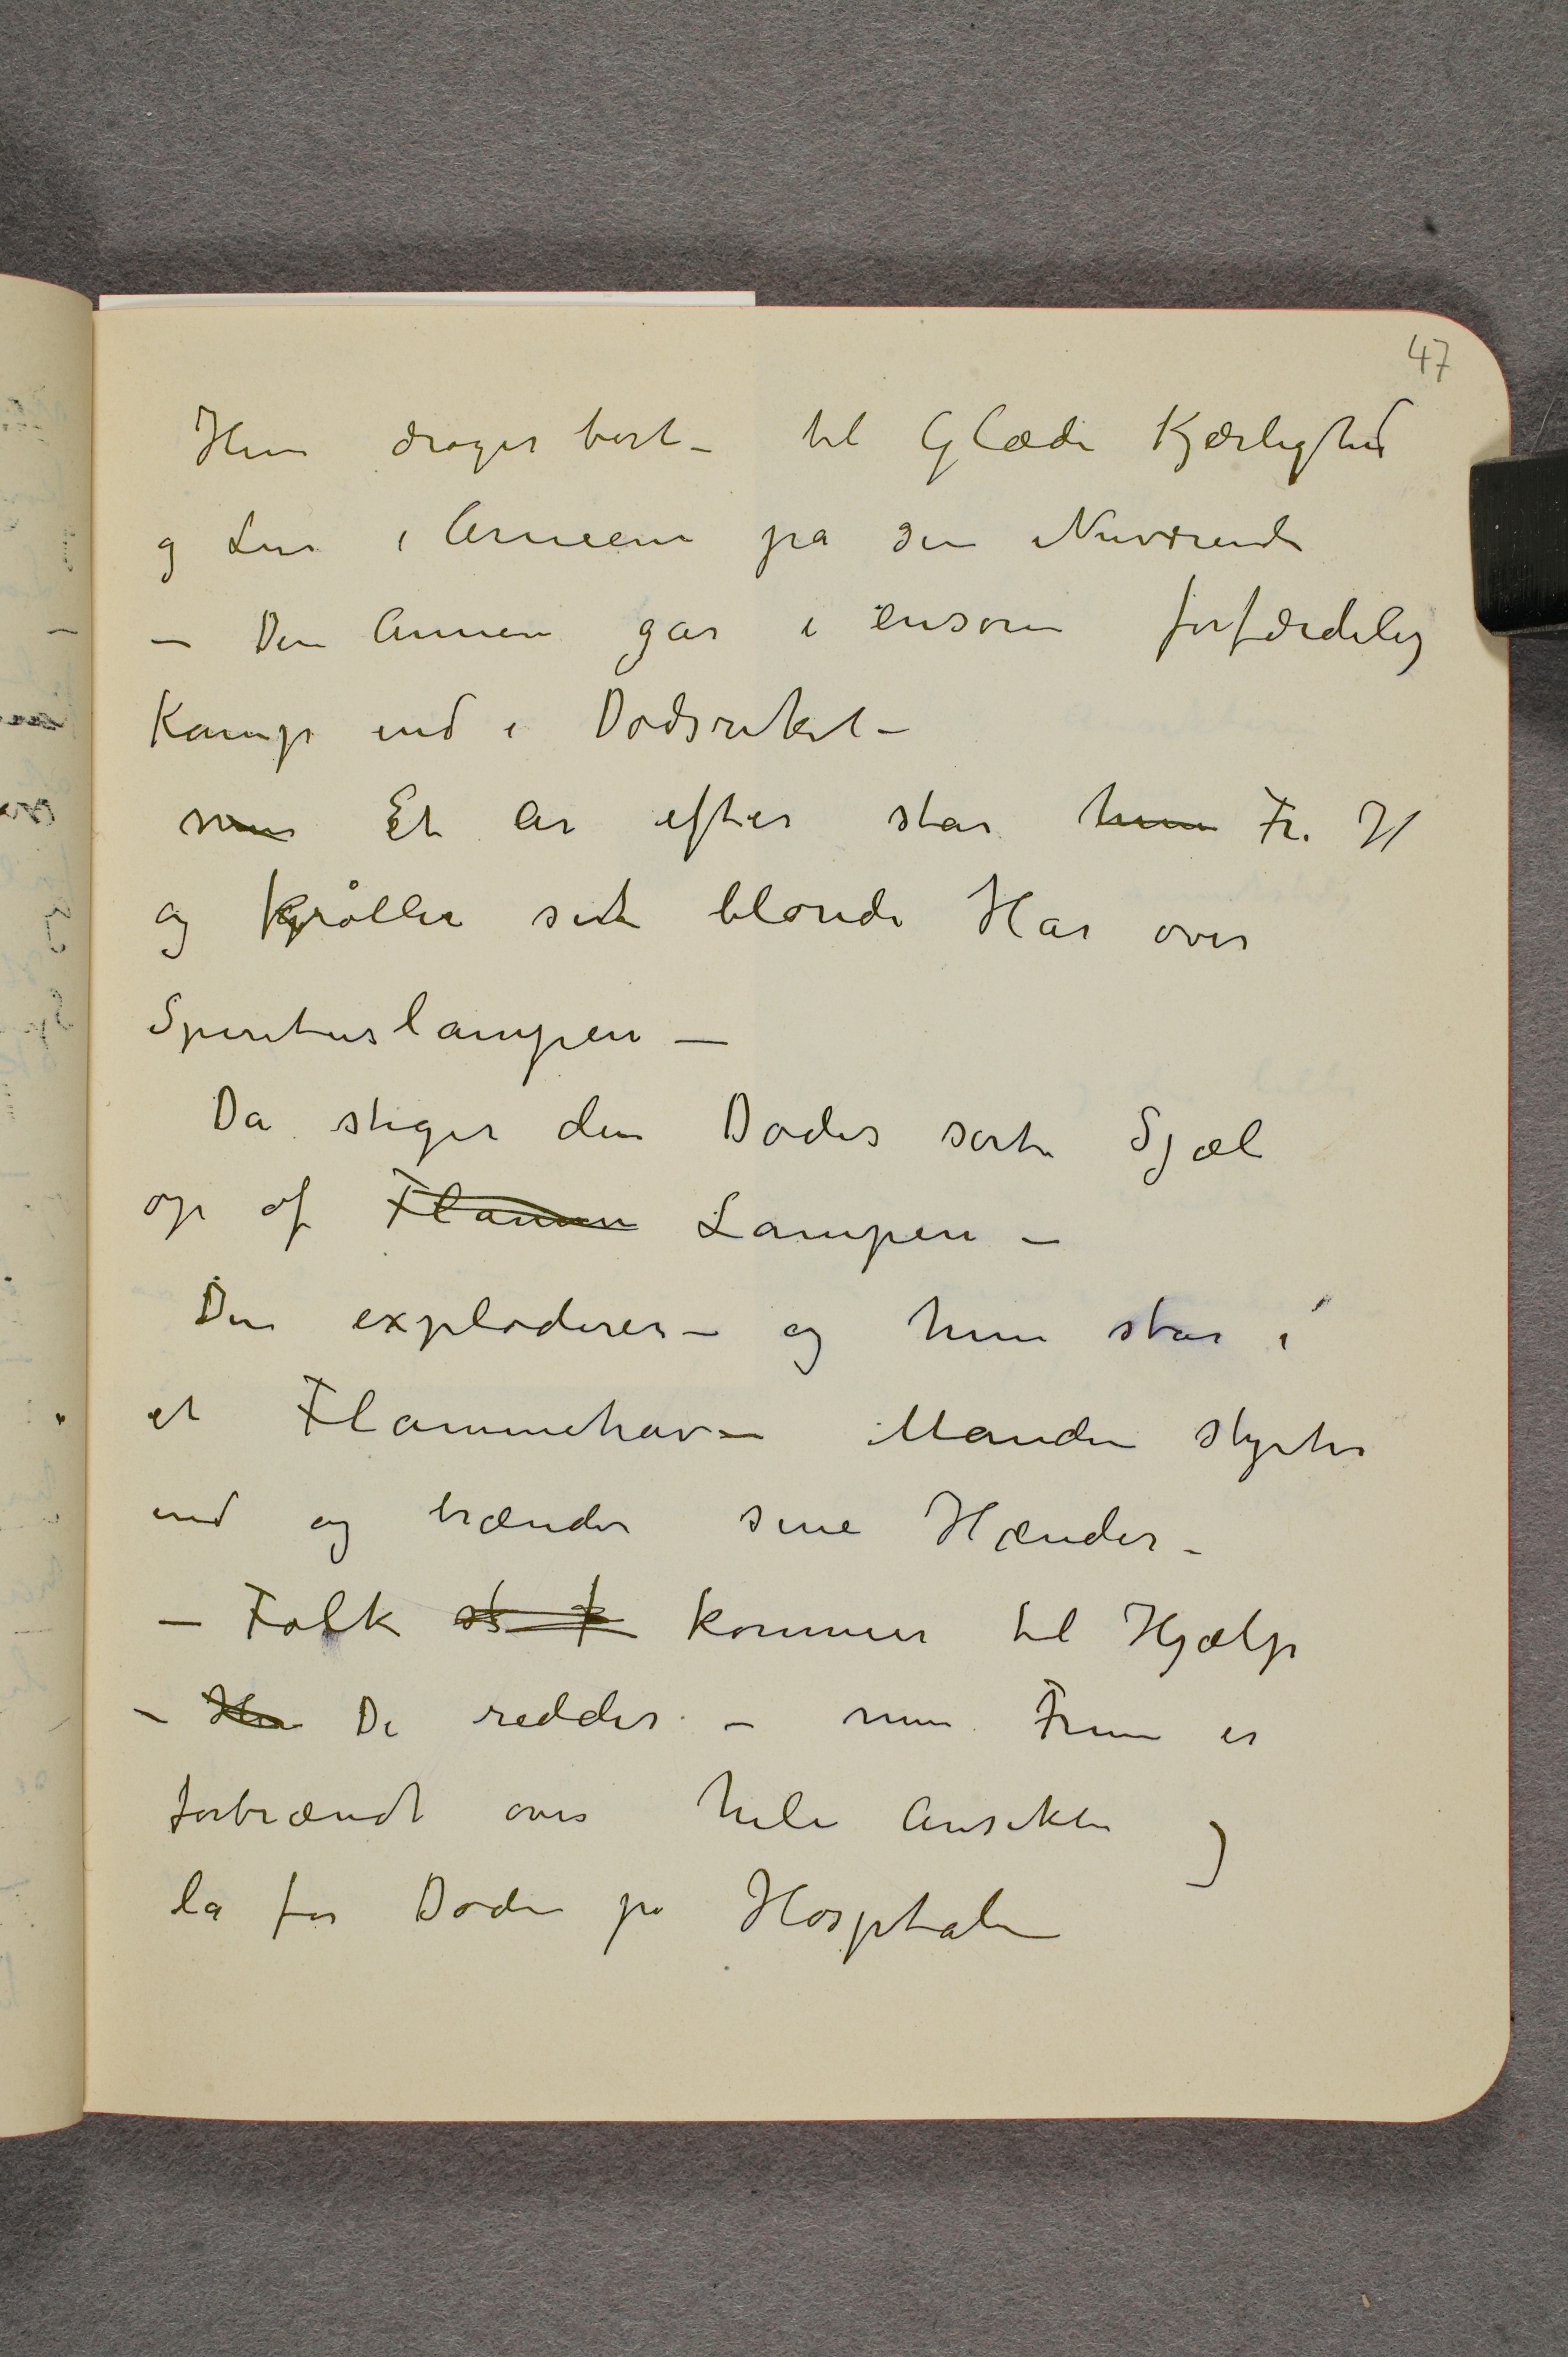 47
Hun drager bort – til Glæde Kjærlighed
og Liv i Armeene på den Nuværende
– Den Annen går i ensom forfærdelig
Kamp ind i Dodsriket –
men Et år efter står hun Fr. H
og krøller sit blonde Hår over
Spirituslampen –
Da stiger den Dødes sorte Sjæl
op af Flammen Lampen –
Den exploderer – og hun står i
et Flammehav – Manden styrter
ind og brænder sine Hænder –
– Folk st k kommer til Hjælp
– Hun De reddes – men Fruen er
forbrændt over hele Ansiktet
lå for Døden på Hospitalen